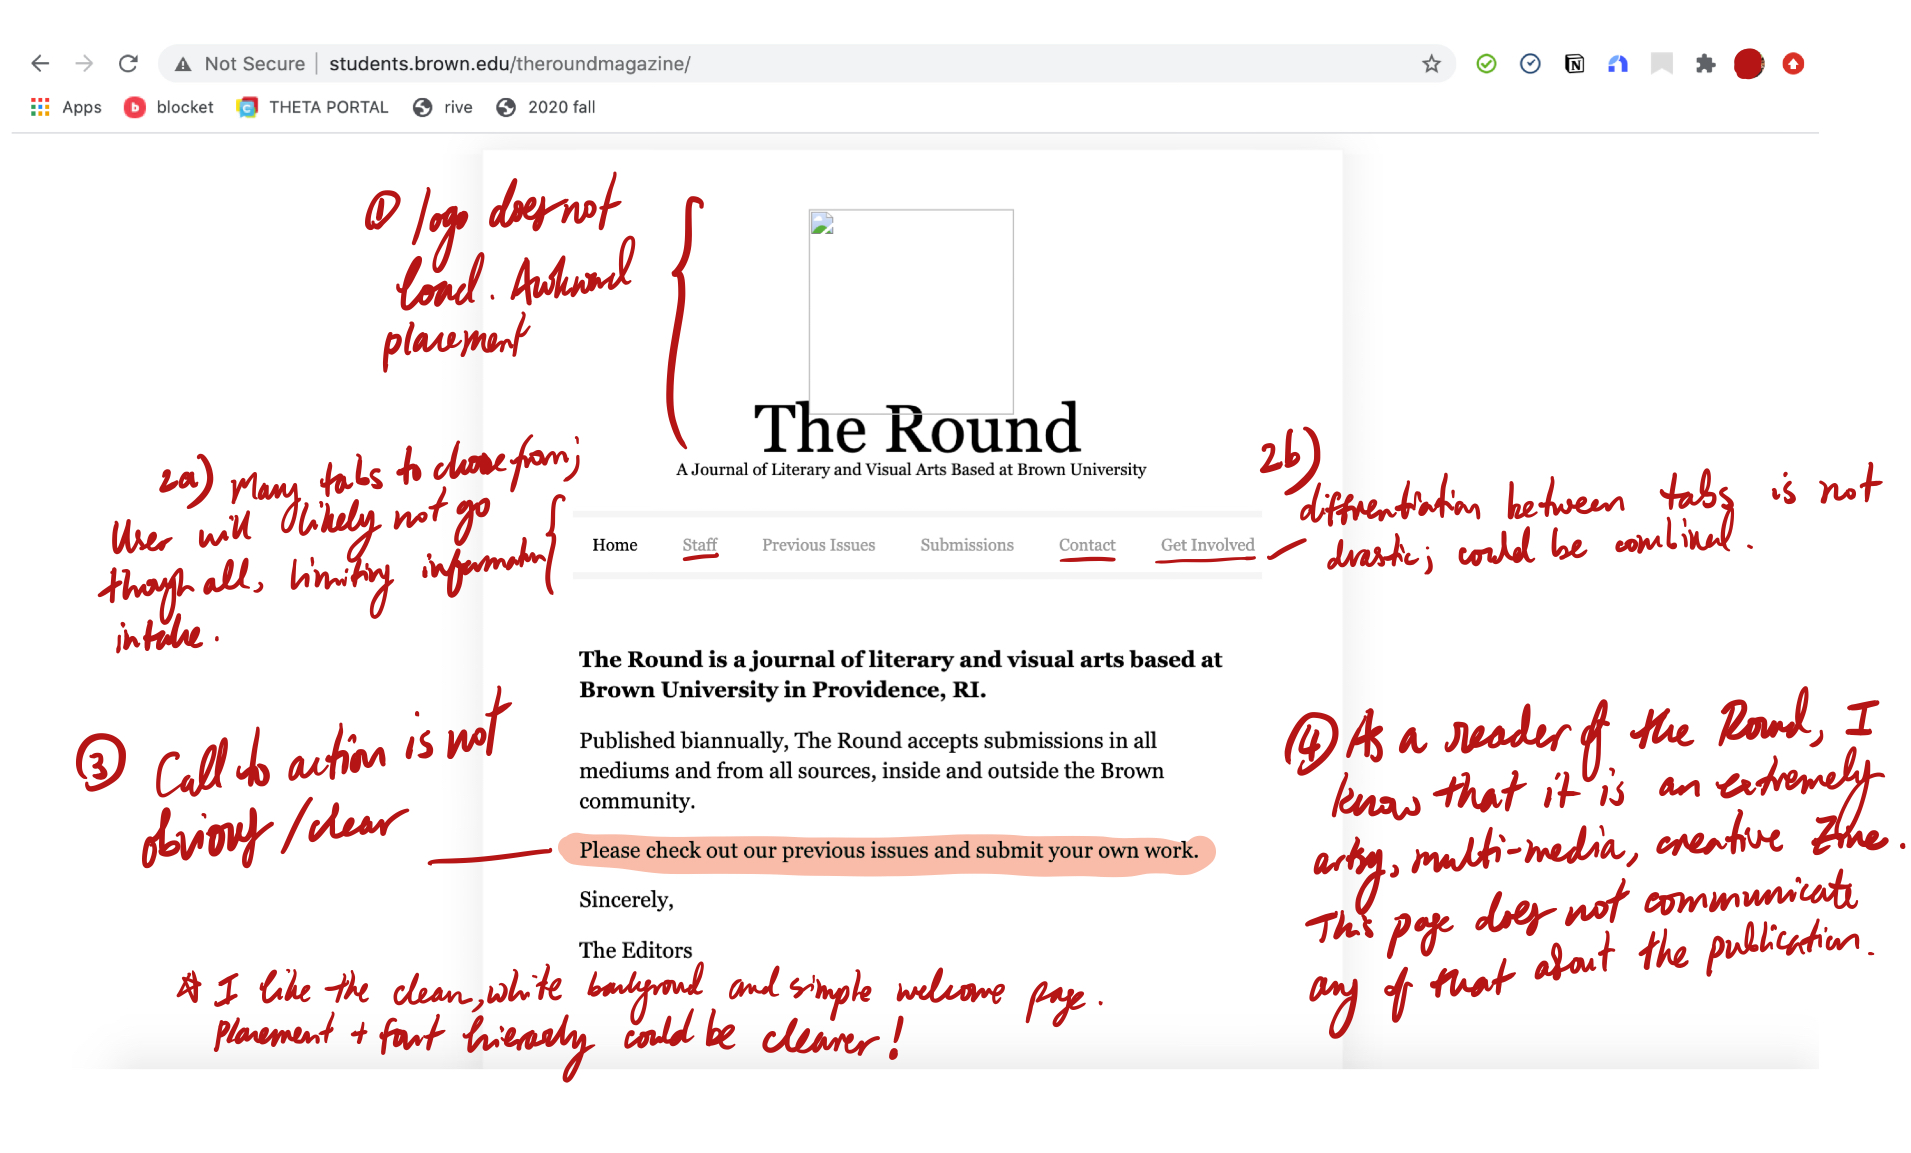 Not Secure | students.brown.edu/theroundmagazine/
Apps blocket THETA PORTAL rive 2020 fall
① logo does not
load. Awkward
placement
The Round
A Journal of Literary and Visual Arts Based at Brown University
2a) Many tabs to choose from;
User will likely not go
though all, limiting information
intake.
Home Staff Previous Issues Submissions Contact Get Involved
2b)
diffrentiation between tabs is not
drastic; could be combined.
The Round is a journal of literary and visual arts based at
Brown University in Providence, RI.
Published biannually, The Round accepts submissions in all
mediums and from all sources, inside and outside the Brown
community.
③ Call to action is not
obvious/clear
Please check out our previous issues and submit your own work.
Sincerely,
The Editors
④ As a reader of the Round, I
know that it is an extremely
artsy, multi-media, creative Zine.
This page does not communicate
any of that about the publication.
☆ I like the clean, white background and simple welcome page.
Placement + font hierachy could be clearer!